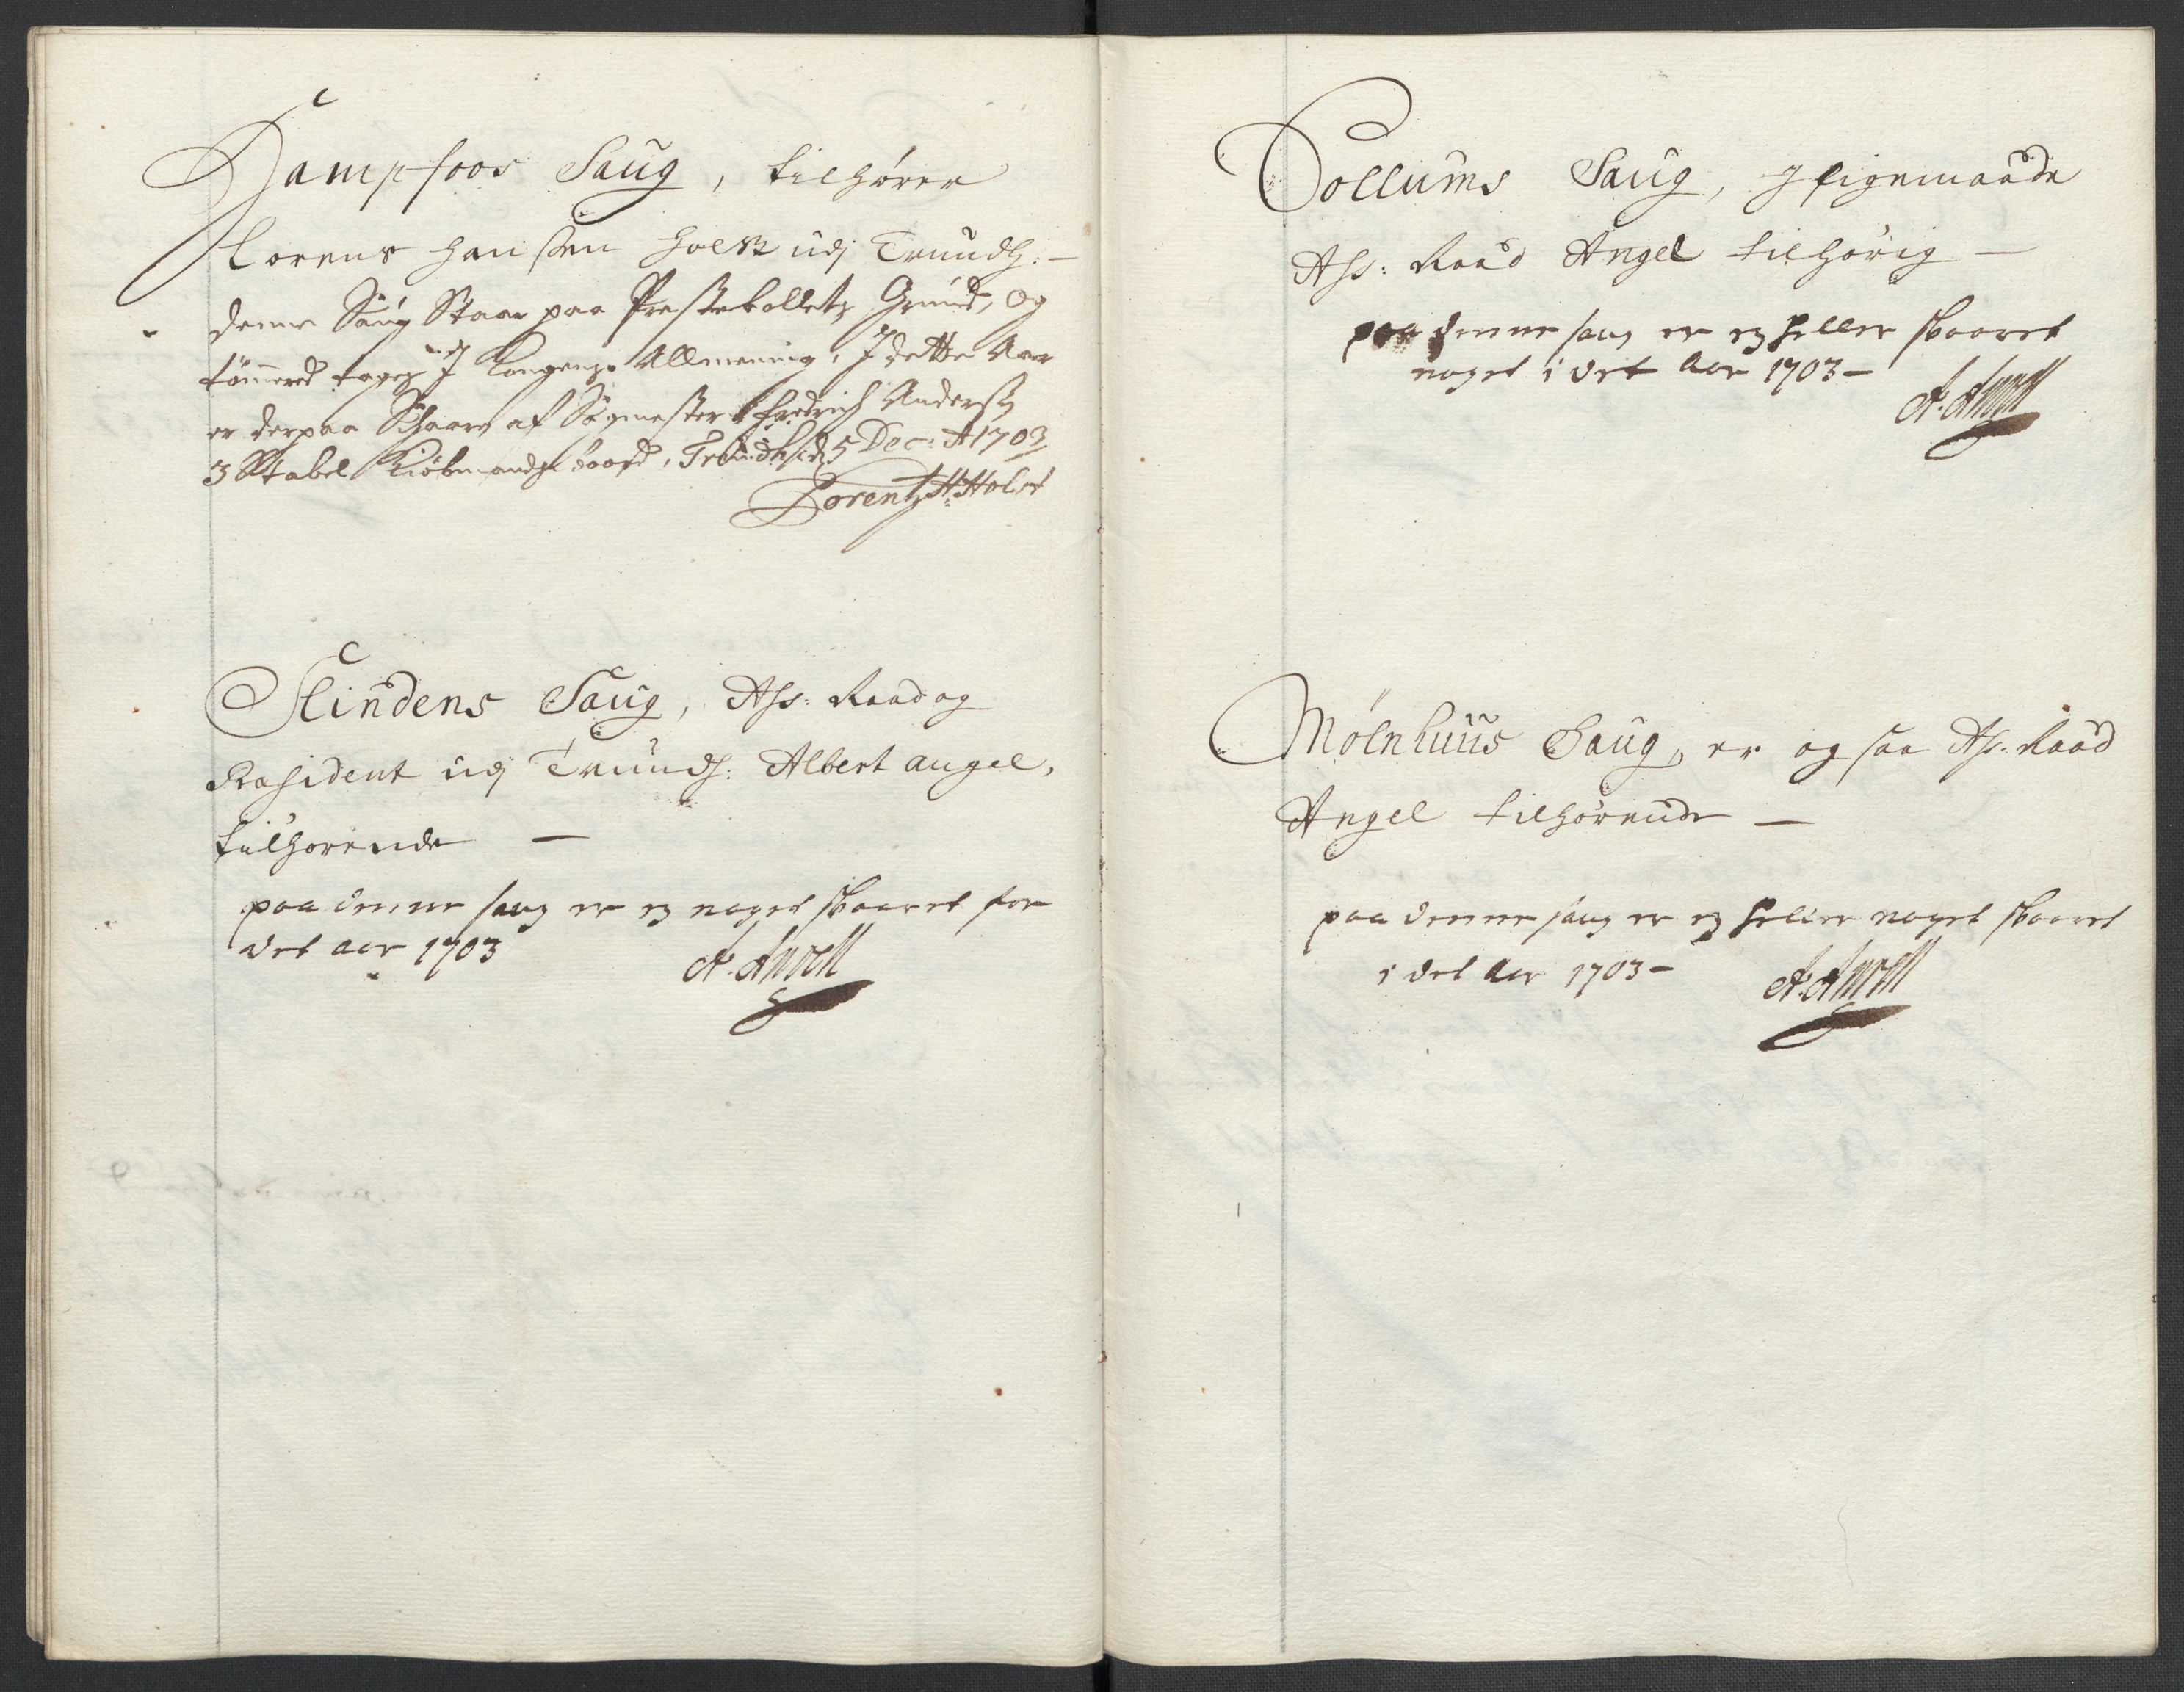 Hampfoos Saug, tilhører
Lorens Hanssen Holst udj Trundh: —
denne Saug Staar paa Prestebollets Grund, og
tømmered tages I Kongens Allmening, I dette Aar
er derpaa Skaaren af Sagmester Fredrich Anderss
3 Stabel Kiøbmands boord, Trundh: d 5 Dec: A 1703
Lorentz H: Holst
Slindens Saug, Ass: Raad og
Præsident udj Trundh: Albert Angel,
tilhørende —
paa denne saug er ey noget skaaret for
det aar 1703
A. Angell
Collums Saug, I ligemaade
Ass: Raad Angel tilhørig —
paa denne saug er ey heller skaaret
noget i det Aar 1703 —
A. Angell
Mølnhuus Saug, er og saa As: Raad
Angel tilhørende —
paa denne saug er ey heller noget skaaret
i det Aar 1703 —
A. Angell